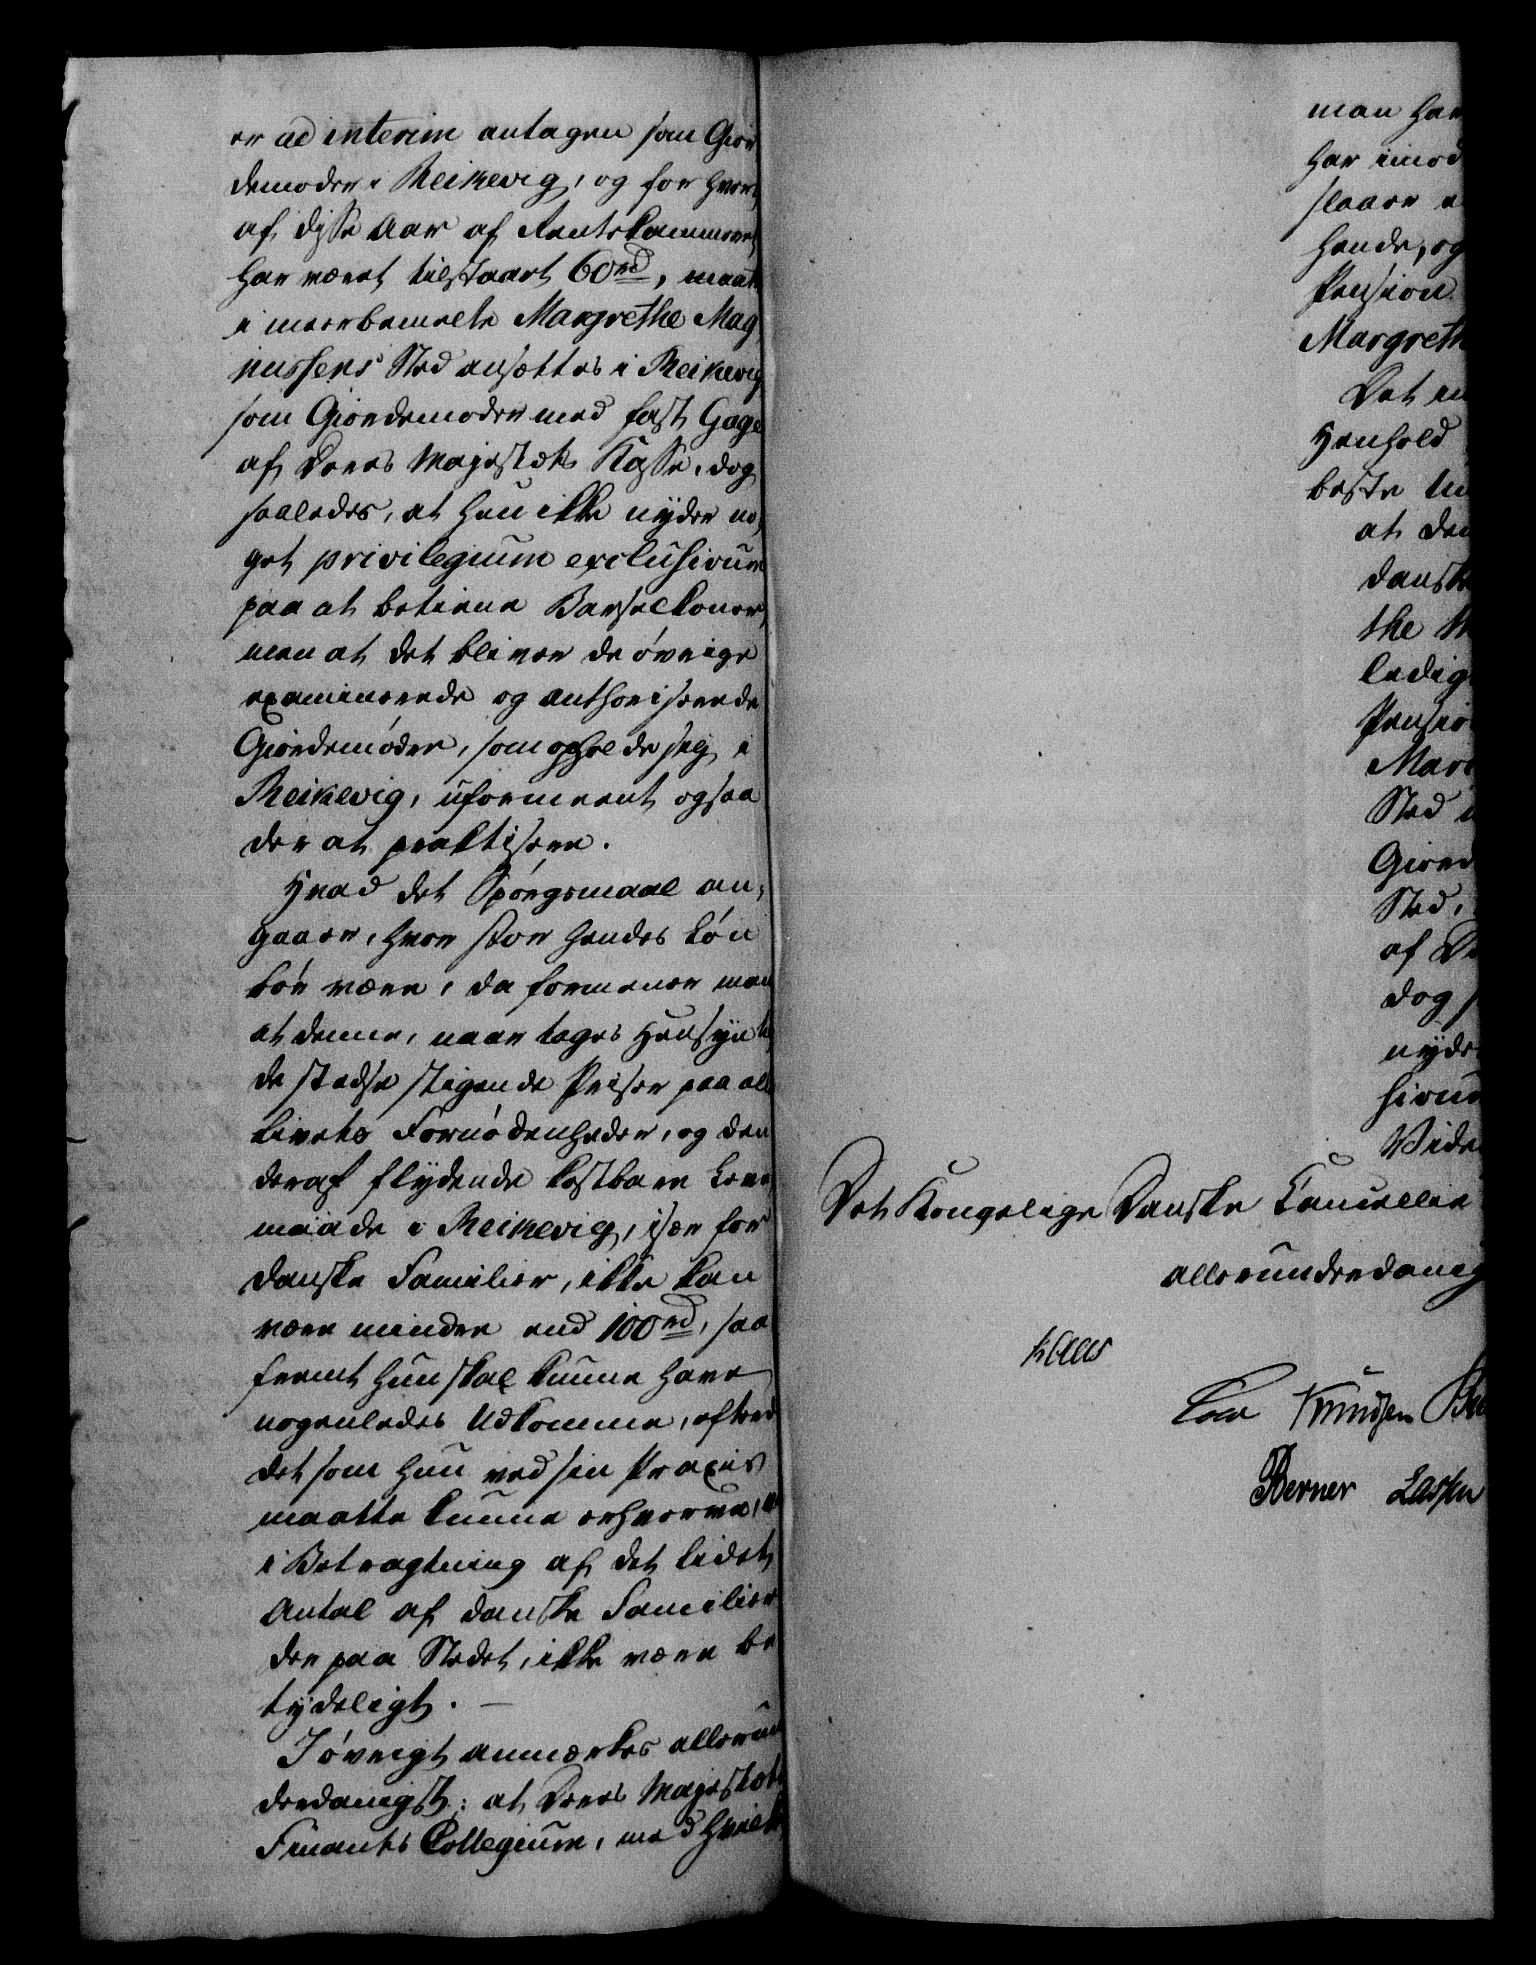 er ad interim antagen som Gior
demoder i Reikevig, og for hvert
af disse Aar af Rentekammeret
har været tilstaaet 60 rd, maatte
i meerbemelte Margrethe Mag
nussens Sted ansættes i Reikevig
som Giordemoder med fast Gage
af Deres Majestæts Kasse, dog
saaledes, at hun ikke nyder no,
get privilegium exclusivum
paa at betiene Barselkoner,
men at det bliver de øvrige
examinerede og authoriserede
Giordemødre, som opholde sig i
Reikevig, uformeent ogsaa
der at praktisere.
Hvad det Spørgsmaal an,
gaaer, hvor stor hendes Løn
bør være, da formener man
at denne, naar tages Hensyn til
de stedse stigende Priser paa alle
Livets Fornødenheder, og den
deraf flydende kostbare Leve
maade i Reikevig, især for
danske Familier, ikke kan
være mindre end 100 rd, saa
fremt hun skal kunne have
nogenledes Udkomme, efterd
det som hun ved sin Praxis
maatte kunne erhverve,
i Betragtning af det lidet
Antal af danske Familier
der paa Stedet, ikke være be
tydeligt. —
I øvrigt anmærkes allerun
derdanigst: at Deres Majestæts
Finants Collegium, med hvilk
man har
har imod
slaaer
hende, og
Pension
Margreth
Det
Henhold
beste
at den
danske
the M
ledig
Pensio
Mar
Sted i
Giord
Sted,
af De
dog s
nyde
sivu
Vide
Det Kongelige Danske Cancellie
allerunderdanig
Kaas
Cold Knudsen
Berner Lassen